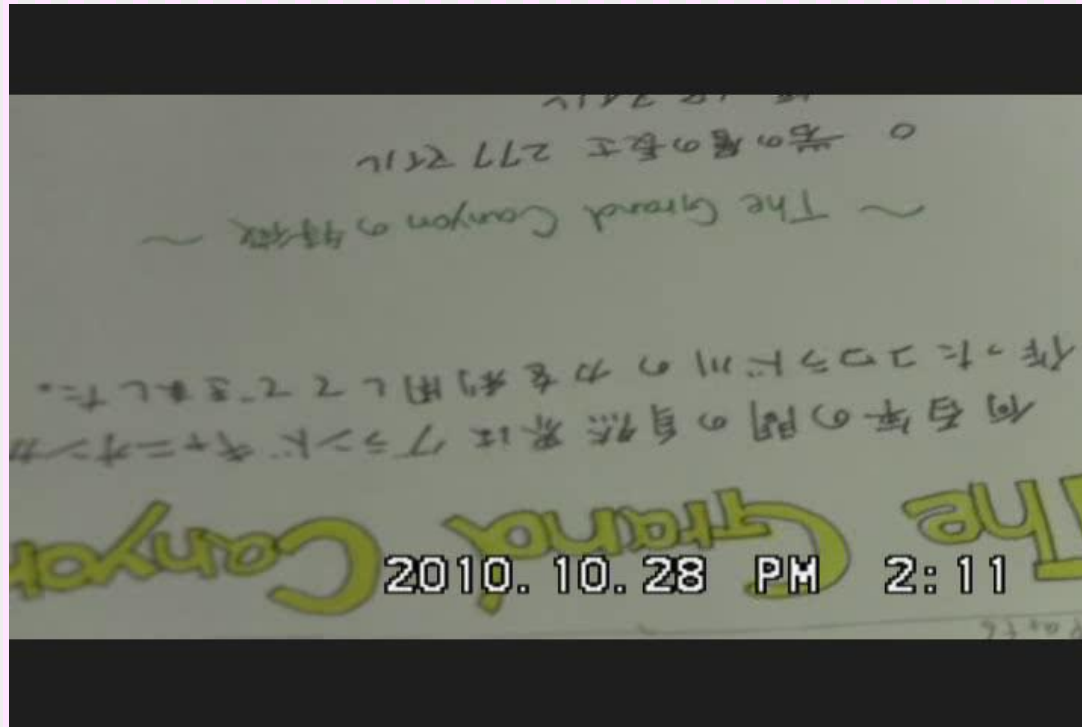 The Grand Canyon
何百年の間の自然界はグランドキャニオンが
作ったコロラド川の力を利用してできました。
~ The Grand Canyonの特徴 ~
○ 岩の層の長さ 277マイル
2010.10.28 PM 2:11